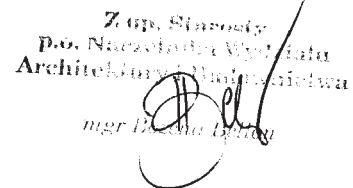 Z up. Starosty
p.o. Naczelnika Wydziału
Architektury i Budownictwa
mgr Bożena